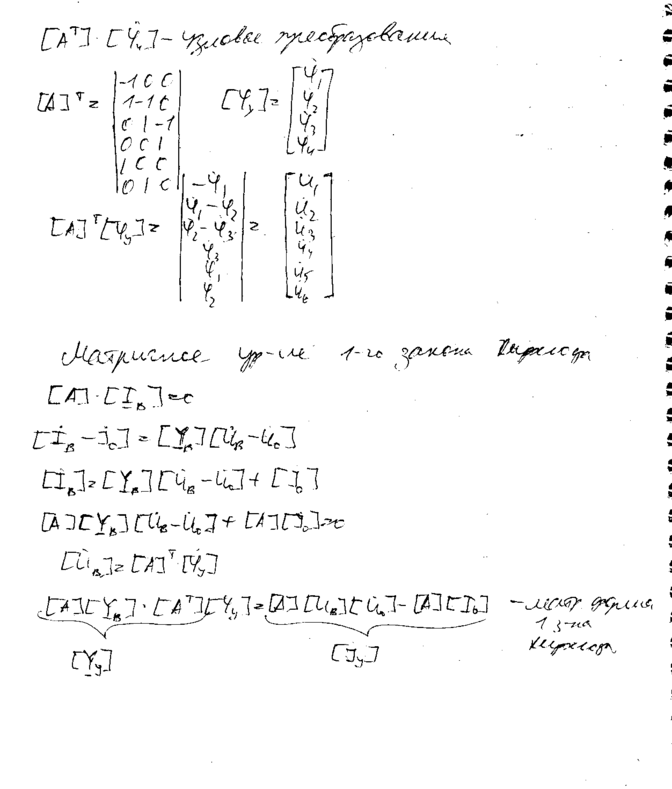 [Aᵀ]·[φ̇ᵧ] - узловое преобразование
[A]ᵀ = |-1 0 0; 1 -1 0; 0 1 -1; 0 0 1; 1 0 0; 0 1 0| [φᵧ] = [φ̇₁; φ̇₂; φ̇₃; φ̇₄]
[A]ᵀ[φ̇ᵧ] = |-φ̇₁; φ̇₁-φ̇₂; φ̇₂-φ̇₃; φ̇₃; φ̇₁; φ̇₂| = [U̇₁; U̇₂; U̇₃; U̇₄; U̇₅; U̇₆]
Матричное ур-ие 1-го закона Кирхгофа
[A]·[İ_в]=0
[İ_в - J̇₀] = [Y_в][U̇_в - U̇₀]
[İ_в] = [Y_в][U̇_в - U̇₀] + [J̇₀]
[A][Y_в][U̇_в - U̇₀] + [A][J̇₀]=0
[U̇_в] = [A]ᵀ[φ̇ᵧ]
[A][Y_в]·[Aᵀ][φᵧ] = [A][U_в][U̇₀] - [A][J₀] - матр форма
1 з-на
Кирхгофа
[Yᵧ] [Jᵧ]